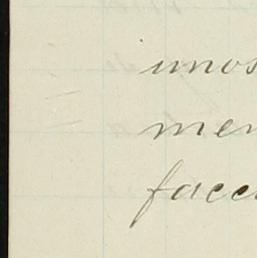 unos
men
facc